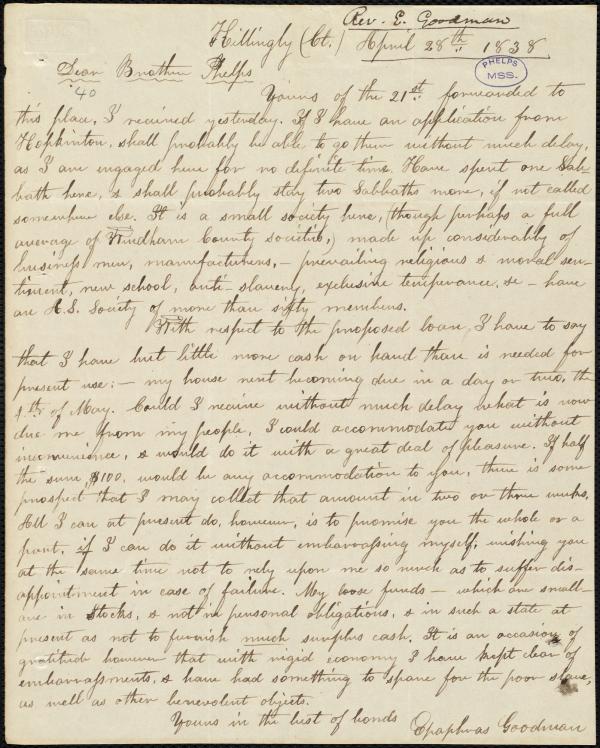 Rev. E. Goodman
Killingly (Ct.) April 28th 1838
PHELPS
MSS.
Dear Brother Phelps
40
Yours of the 21st forwarded to
this place, I received yesterday. If I have an application from
Hopkinton, shall probably be able to go there without much delay,
as I am engaged here for no definite time. Have spent one Sab-
bath here, & shall probably stay two Sabbaths more, if not called
somewhere else. It is a small society here, (though perhaps a full
average of Windham County societies,) made up considerably of
business men, manufacturers, – prevailing religious & moral sen-
timent, new school, anti-slavery, exclusive temperance, &c – have
an A.S. Society of more than sixty members.
With respect to the proposed loan, I have to say
that I have but little more cash on hand than is needed for
present use: – my house rent becoming due in a day or two, the
1st of May. Could I receive without much delay what is now
due me from my people, I could accommodate you without
inconvenience, & would do it with a great deal of pleasure. If half
the sum, $100, would be any accommodation to you, there is some
prospect that I may collect that amount in two or three weeks.
All I can at present do, however, is to promise you the whole or a
part, if I can do it without embarrassing myself; wishing you
at the same time not to rely upon me so much as to suffer dis-
appointment in case of failure. My loose funds – which are small –
are in Stocks, & not in personal obligations, & in such a state at
present as not to furnish much surplus cash. It is an occasion of
gratitude however that with rigid economy I have kept clear of
embarrassments, & have had something to spare for the poor slave,
as well as other benevolent objects.
Yours in the best of bonds
Epaphras Goodman